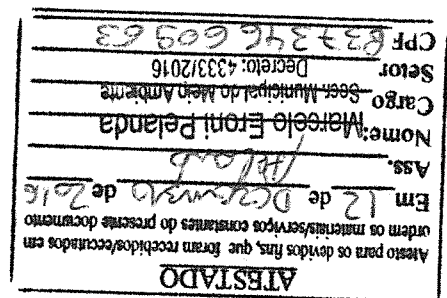 ATESTADO
Atesto para os devidos fins, que foram recebidos/executados em
ordem os materiais/serviços constantes do presente documento
Em 12 de Dezembro de 2016
Ass.
Nome: Marcelo Eroni Pelanda
Cargo Secr. Municipal do Meio Ambiente
Setor Decreto: 4333/2016
CPF 837346609 63